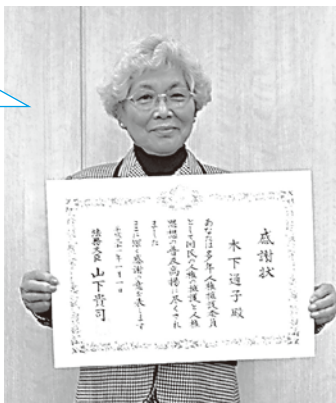 感謝状
木下通子殿
あなたは多年人権擁護委員
として国民の人権の擁護と人権
思想の普及高揚に尽くされ
ました
ここに深く感謝の意を表します
年一月一日
法務大臣 山下貴司